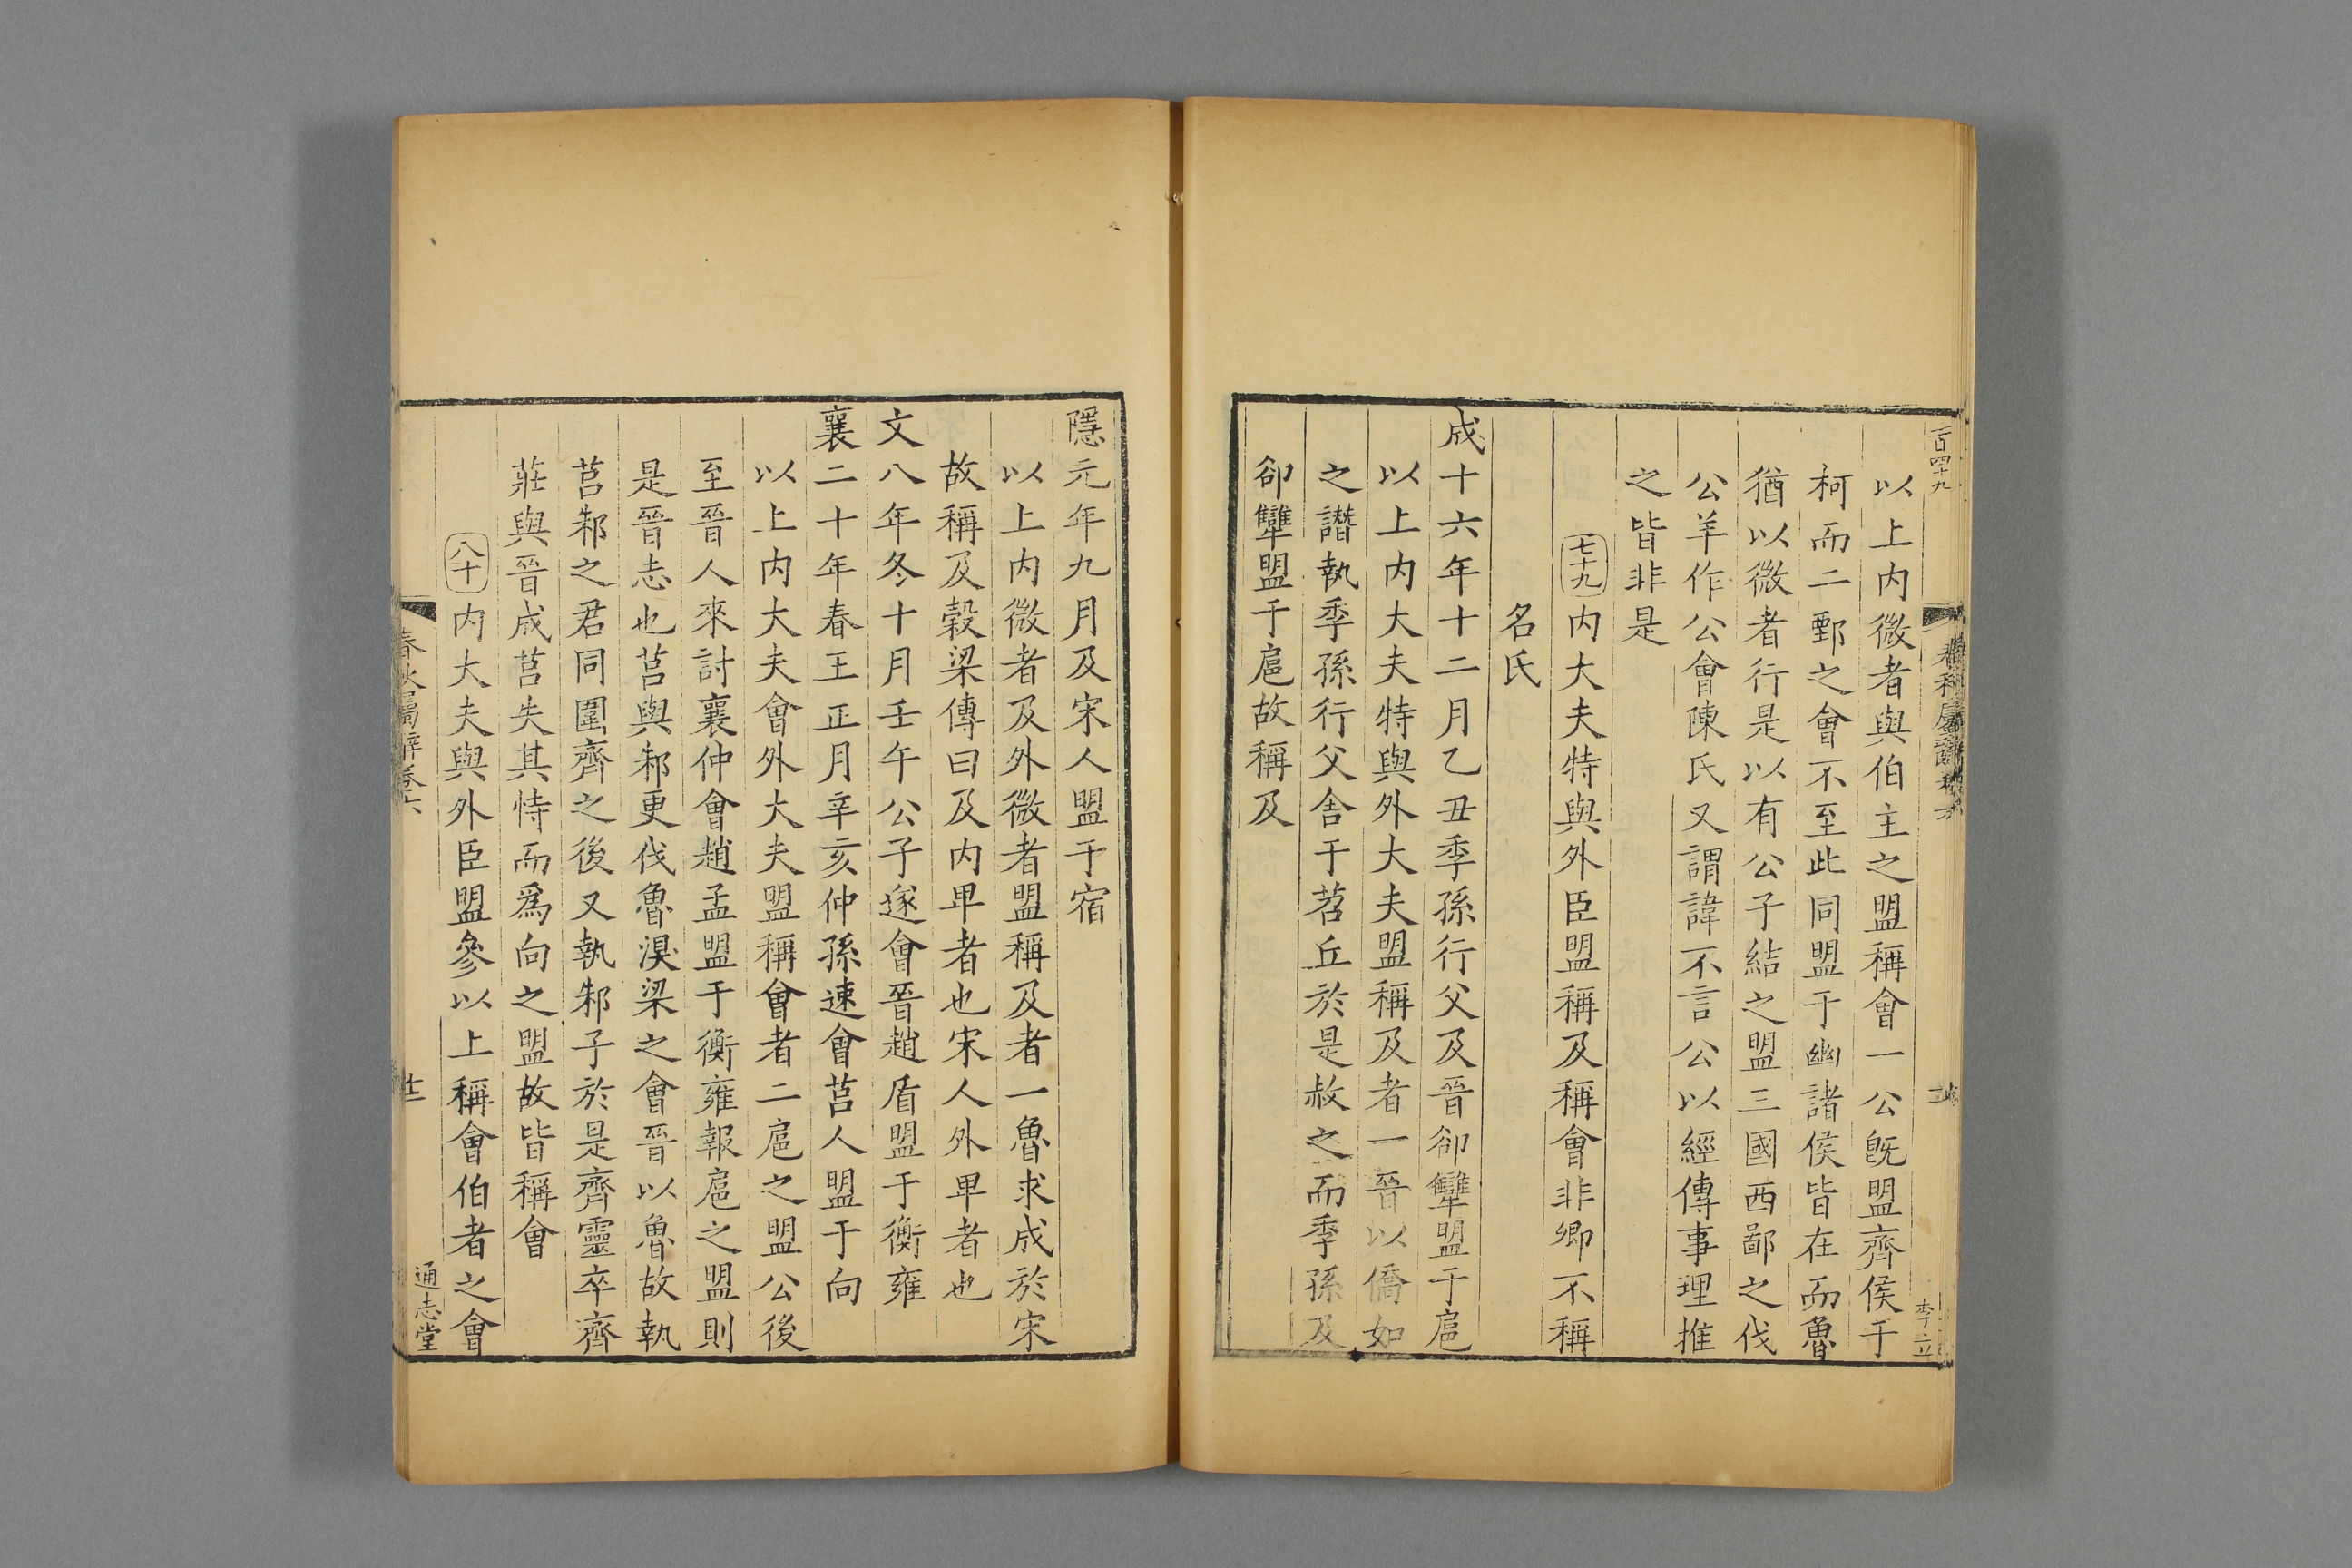 百四十九
春秋屬辭卷六
李立
以上内微者與伯主之盟稱會一公旣盟齊侯于
柯而二鄄之會不至此同盟于幽諸侯皆在而魯
猶以微者行是以有公子結之盟三國西鄙之伐
公羊作公會陳氏又謂諱不言公以經傳事理推
之皆非是
七十九内大夫特與外臣盟稱及稱會非卿不稱
名氏
成十六年十二月乙丑季孫行父及晉郤犨盟于扈
以上内大夫特與外大夫盟稱及者一晉以僑如
之譖執季孫行父舍于苕丘於是赦之而季孫及
郤犨盟于扈故稱及
隱元年九月及宋人盟于宿
以上内微者及外微者盟稱及者一魯求成於宋
故稱及穀梁傳曰及内卑者也宋人外卑者也
文八年冬十月壬午公子遂會晉趙盾盟于衡雍
襄二十年春王正月辛亥仲孫速會莒人盟于向
以上内大夫會外大夫盟稱會者二扈之盟公後
至晉人來討襄仲會趙孟盟于衡雍報扈之盟則
是晉志也莒與邾更伐魯湨梁之會晉以魯故執
莒邾之君同圍齊之後又執邾子於是齊靈卒齊
莊與晉成莒失其恃而爲向之盟故皆稱會
八十内大夫與外臣盟參以上稱會伯者之會
春秋屬辭卷六
廿
通志堂